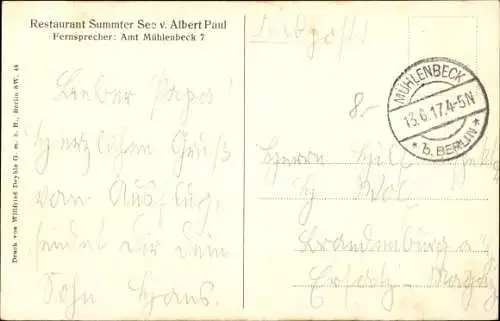 Restaurant Summter See v. Albert Paul
Fernsprecher: Amt Mühlenbeck 7
Feldpost!
MÜHLENBECK
13.6.17.4-5N
* b. BERLIN *
8.-
Lieber Papa!
Herzlichen Gruß
vom Ausflug,
sendet dir dein
Sohn Hans.
Herrn
Brandenburg a.
Ersatz-
Druck von Wilfried Deyhle G. m. b. H., Berlin SW. 48